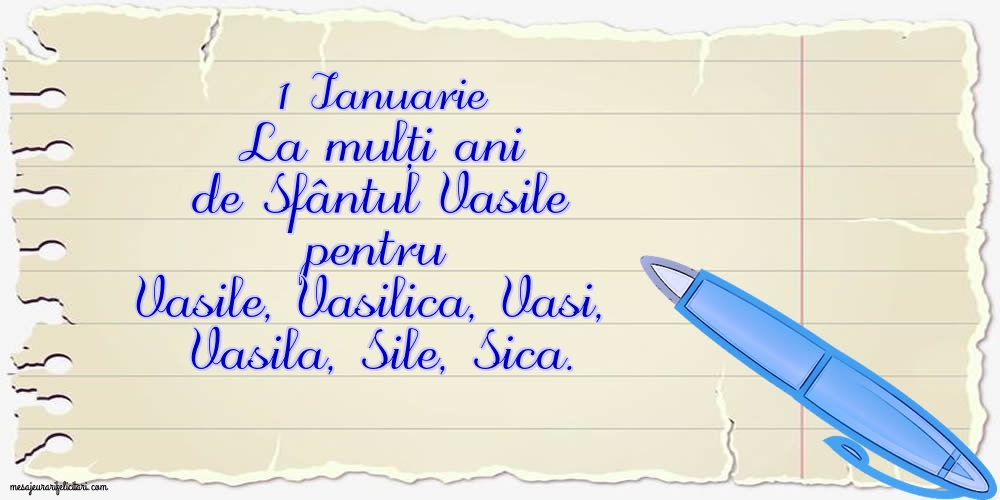 1 Ianuarie
La mulți ani
de Sfântul Vasile
pentru
Vasile, Vasilica, Vasi,
Vasila, Sile, Sica.
mesajeurarifelicitari.com